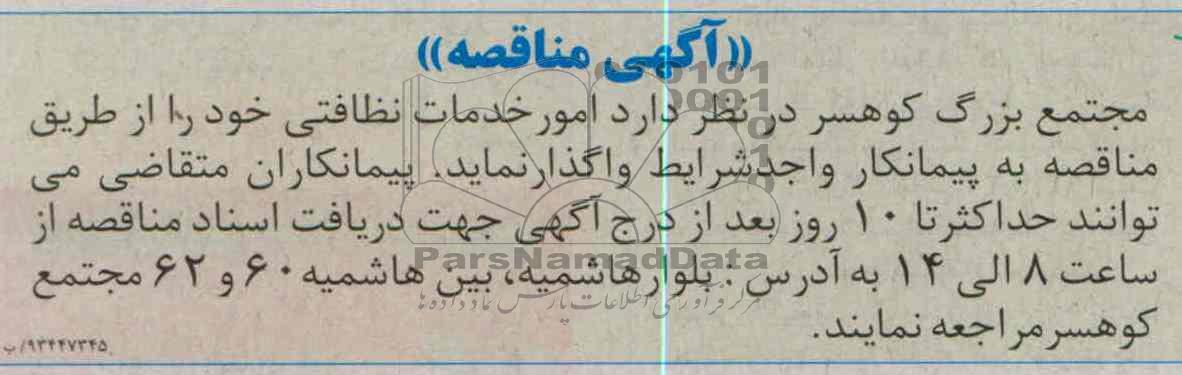 ((آگهی مناقصه))
مجتمع بزرگ کوهسر در نظر دارد امور خدمات نظافتی خود را از طریق
مناقصه به پیمانکار واجدشرایط واگذارنماید. پیمانکاران متقاضی می
توانند حداکثرتا ۱۰ روز بعد از درج آگهی جهت دریافت اسناد مناقصه از
ساعت ۸ الی ۱۴ به آدرس : بلوارهاشمیه، بین هاشمیه ۶۰ و ۶۲ مجتمع
کوهسر مراجعه نمایند.
۹۳۴۴۷۳۴۵/ب
ParsNamadData
مرکز فرآوری اطلاعات پارس نماد داده ها